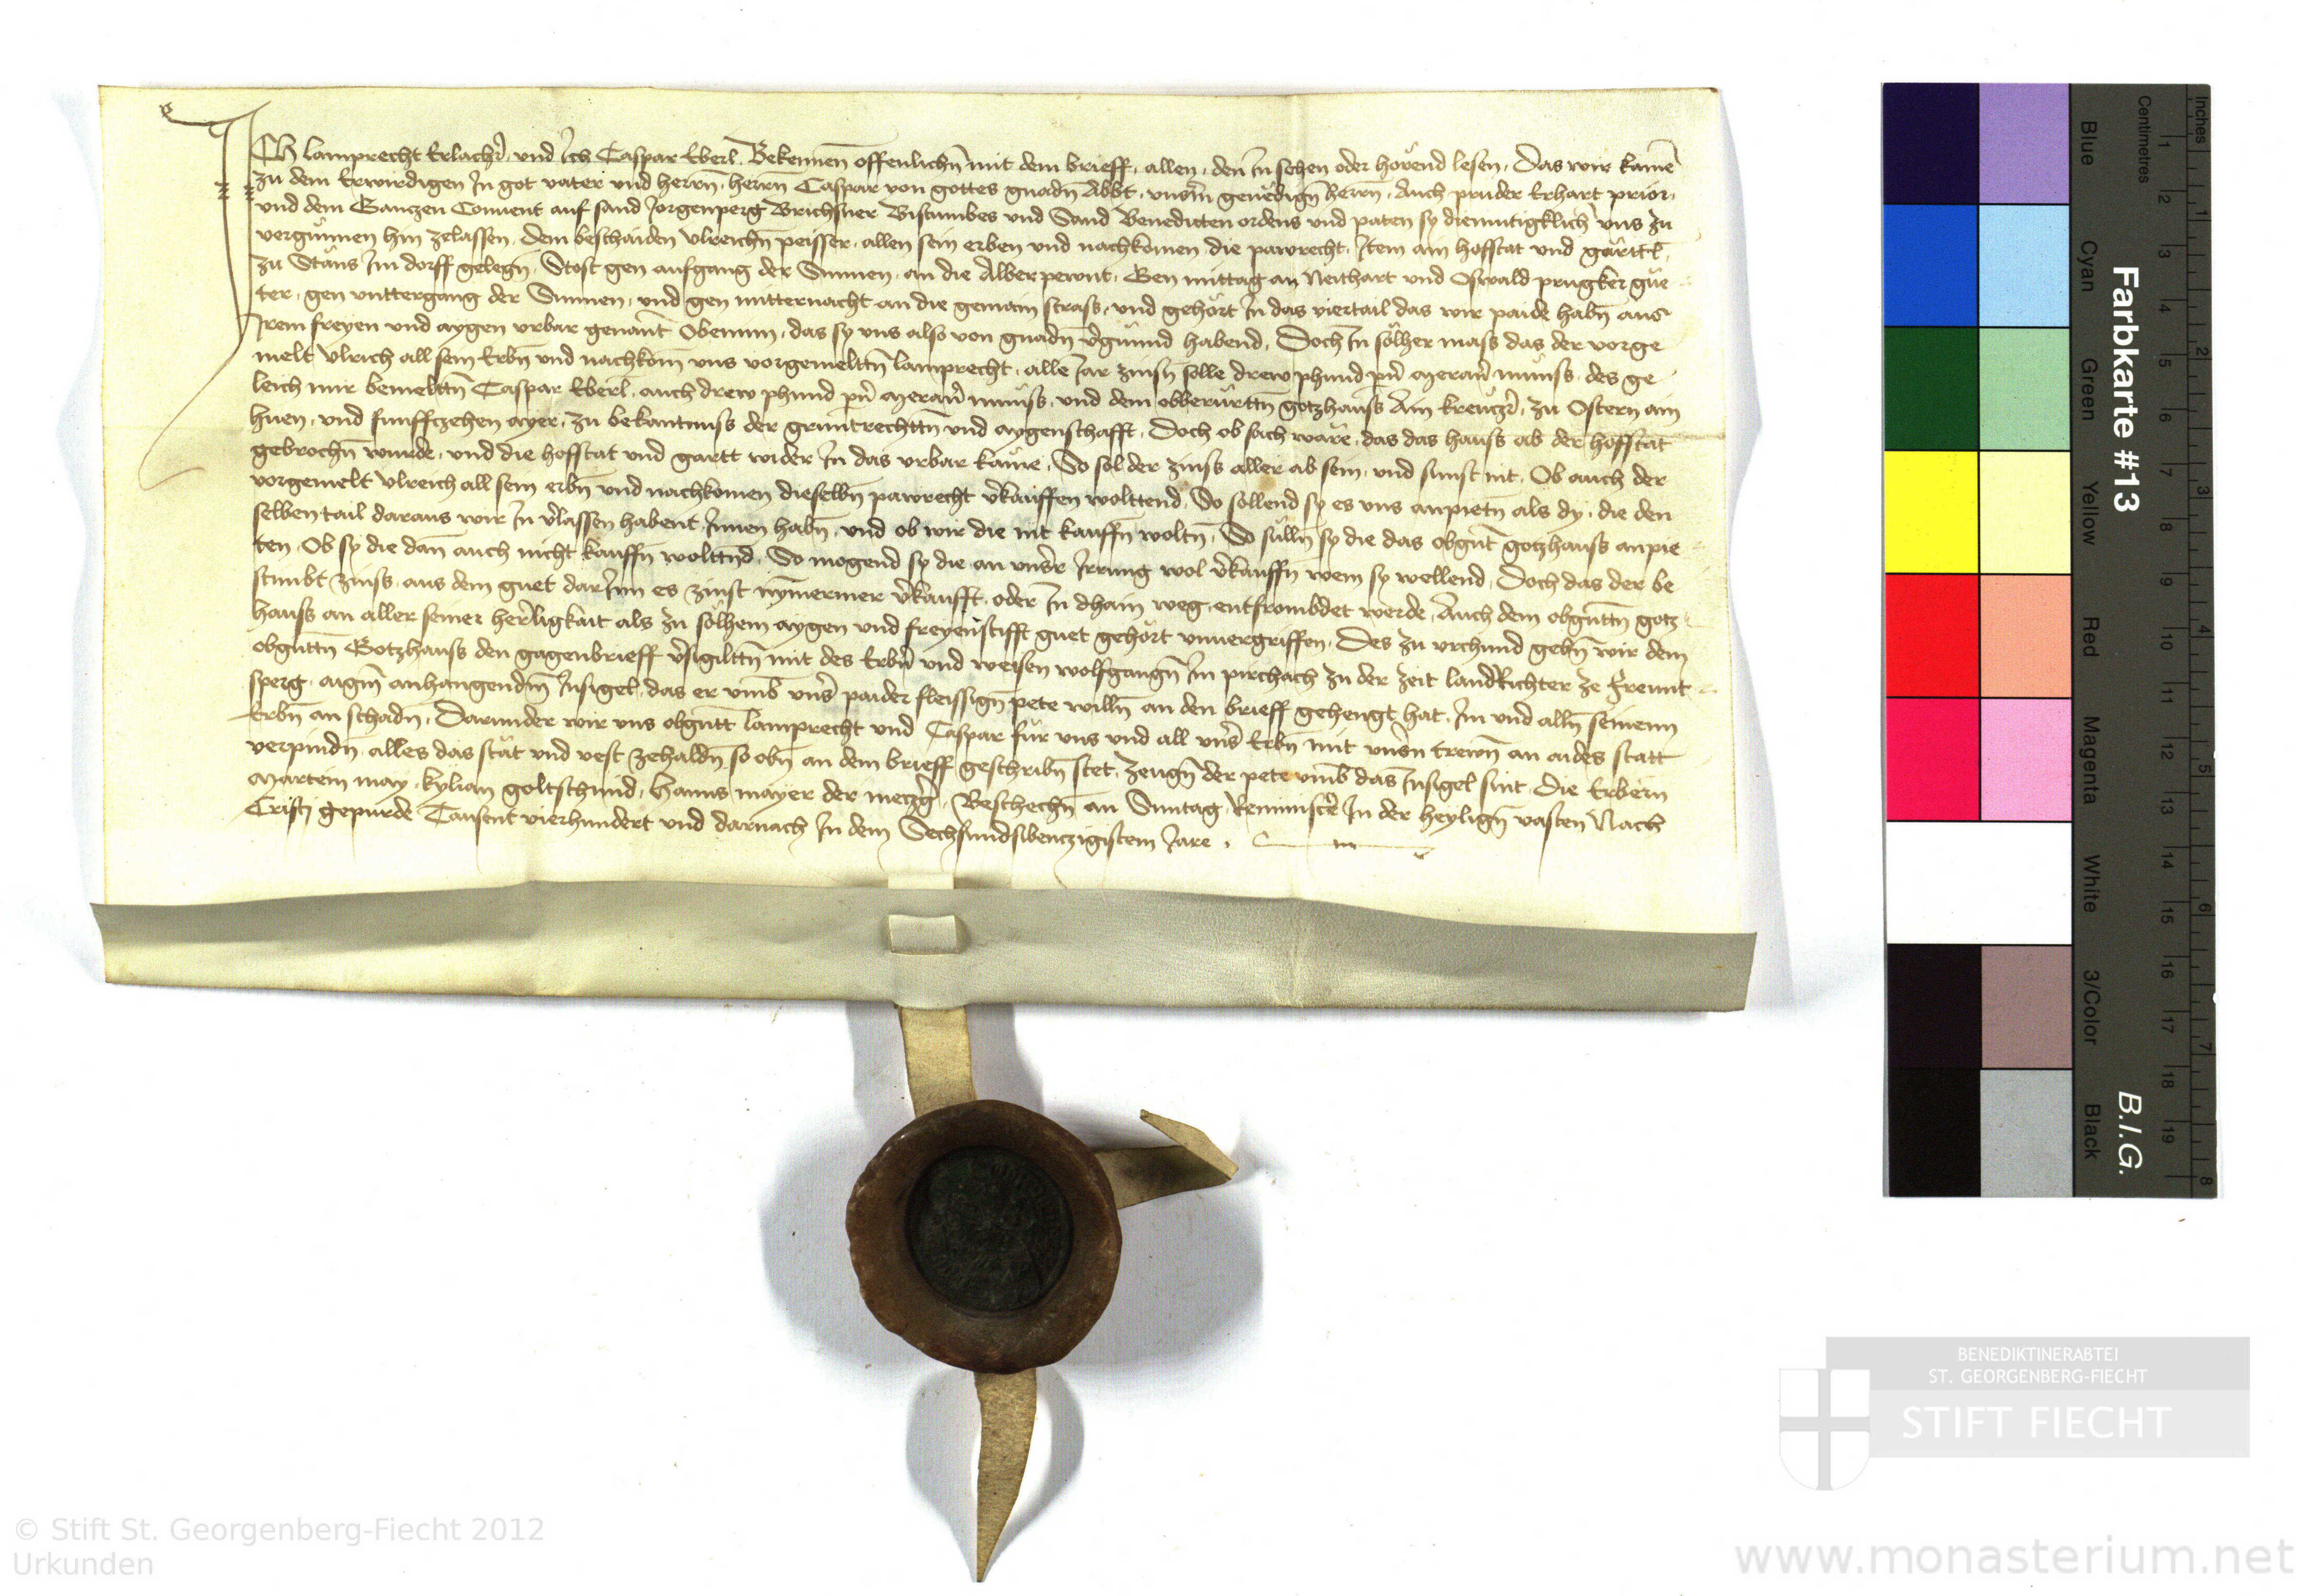 ICh lamprecht Erlacher und Ich Caspar Eberl. Bekennen offenlichn mit dem brieff, allen, den In sehen oder horend lesen, Das wir kame
zu dem Erwirdigen In got vater und herrn, herrn Caspar von gottes gnadn Abbt, unserm genedign herrn, Auch pruder Erhart prior,
und dem Gantzen Convent auf sand Jorgenperg Brichsner Bistumbes und Sand Benedicten ordens und paten sy diemutigklich uns zu
vergunnen hin zelassen, dem beschaiden Ulreichn peisser, allen sein erben und nachkomen die pawrecht, Item ain hofstat und gärttl,
zu Stans Im dorff gelegn, Stost gen aufgang der Sunnen, an die Alber pewnt, Gen mittag an Neithart und Oswald prugker gue
ter, gen unttergang der Sunnen, und gen mitternacht an die gemain strass, und gehört In das viertail das wir paide habn aus
Irem freyen und aygen urbar genant Obemim, das sy uns also von gnadn vergunnd habend, Doch In solher mass das der vorge
melt Ulrich all sein Erbn und nachkom uns vorgemelttn lamprecht, alle Iar zinsn solle drew phund pn meraner munss, des ge
leich mir bemelttn Caspar Eberl, auch drew phund pn meraner munss, und dem obberürttn gotzhauss Ain kreuczer, zu Ostern ain
huen, und funffczehen ayer, zu bekantnuss der gruntrechttn und aygenschafft, Doch ob sach ware, das das hauss ab der hofstat
gebrochn wurde, und die hofstat und gartt wider In das urbar käme, So sol der zinss aller ab sein, und sunst nit, Ob auch der
vorgemelt Ulreich all sein erbn und nachkomen dieselbn pawrecht verkauffen wolttend, So sollend sy es uns anpietn als dy, die den
selben tail daraus wir In verlassen habent Innen habn, und ob wir die nit kauffn woltn, So sulln sy die das obgnt gotzhauss anpie
ten, Ob sy die dan auch nicht kauffn wolttnd, So mogend sy die an unser Irrung wol verkauffn wem sy wellend, Doch das der be
stimbt zinss, aus dem guet darInn es zinst nymermer verkaufft, oder In dhain weg, entfrombdet werde, Auch dem obgnttn gotz
hauss an aller seiner herligkait als zu solhem aygen und freyenstifft guet gehört unvergriffen, Des zu urchund gebn wir dem
obgnttn Gotzhauss den gagenbrieff versigilttn mit des Erbern und weisen wolfgangn Im pirchach zu der zeit landRichter ze Freunt
sperg, aigm anhangendem Insigel, das er umb unser paider fleissign pete willn an den brieff gehengt hat, Im und alln seinenn
Erbn an schadn, Darunder wir uns obgntt lamprecht und Caspar für uns und all unser Erbn mit unsern trewn an aides statt
verpindn alles das stät und vest zehaldn, so obn an dem brieff geschribn stet, zeugn der pete umb das Insigel sint, Die Erbern
Martein may, kylian goltschmid, Hanns mayer der meczger, Beschechn an Suntag Reminiscere In der heylign vasten Nach
Cristi gepurde Tausent vierhundert und darnach In dem Sechsundsibentzigistem Iare.
Farbkarte #13
B.I.G.
Inches
Centimetres
1 2 3 4 5 6 7 8 9 10 11 12 13 14 15 16 17 18 19
1 2 3 4 5 6 7 8
Blue
Cyan
Green
Yellow
Red
Magenta
White
3/Color
Black
BENEDIKTINERABTEI
ST. GEORGENBERG-FIECHT
STIFT FIECHT
© Stift St. Georgenberg-Fiecht 2012
Urkunden
www.monasterium.net